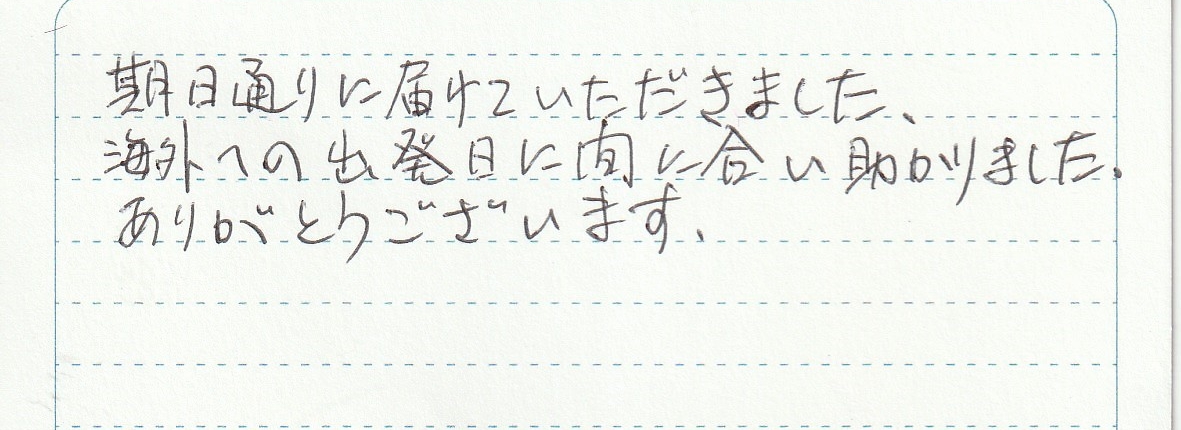 期日通りに届けていただきました、
海外への出発日に間に合い助かりました.
ありがとうございます.